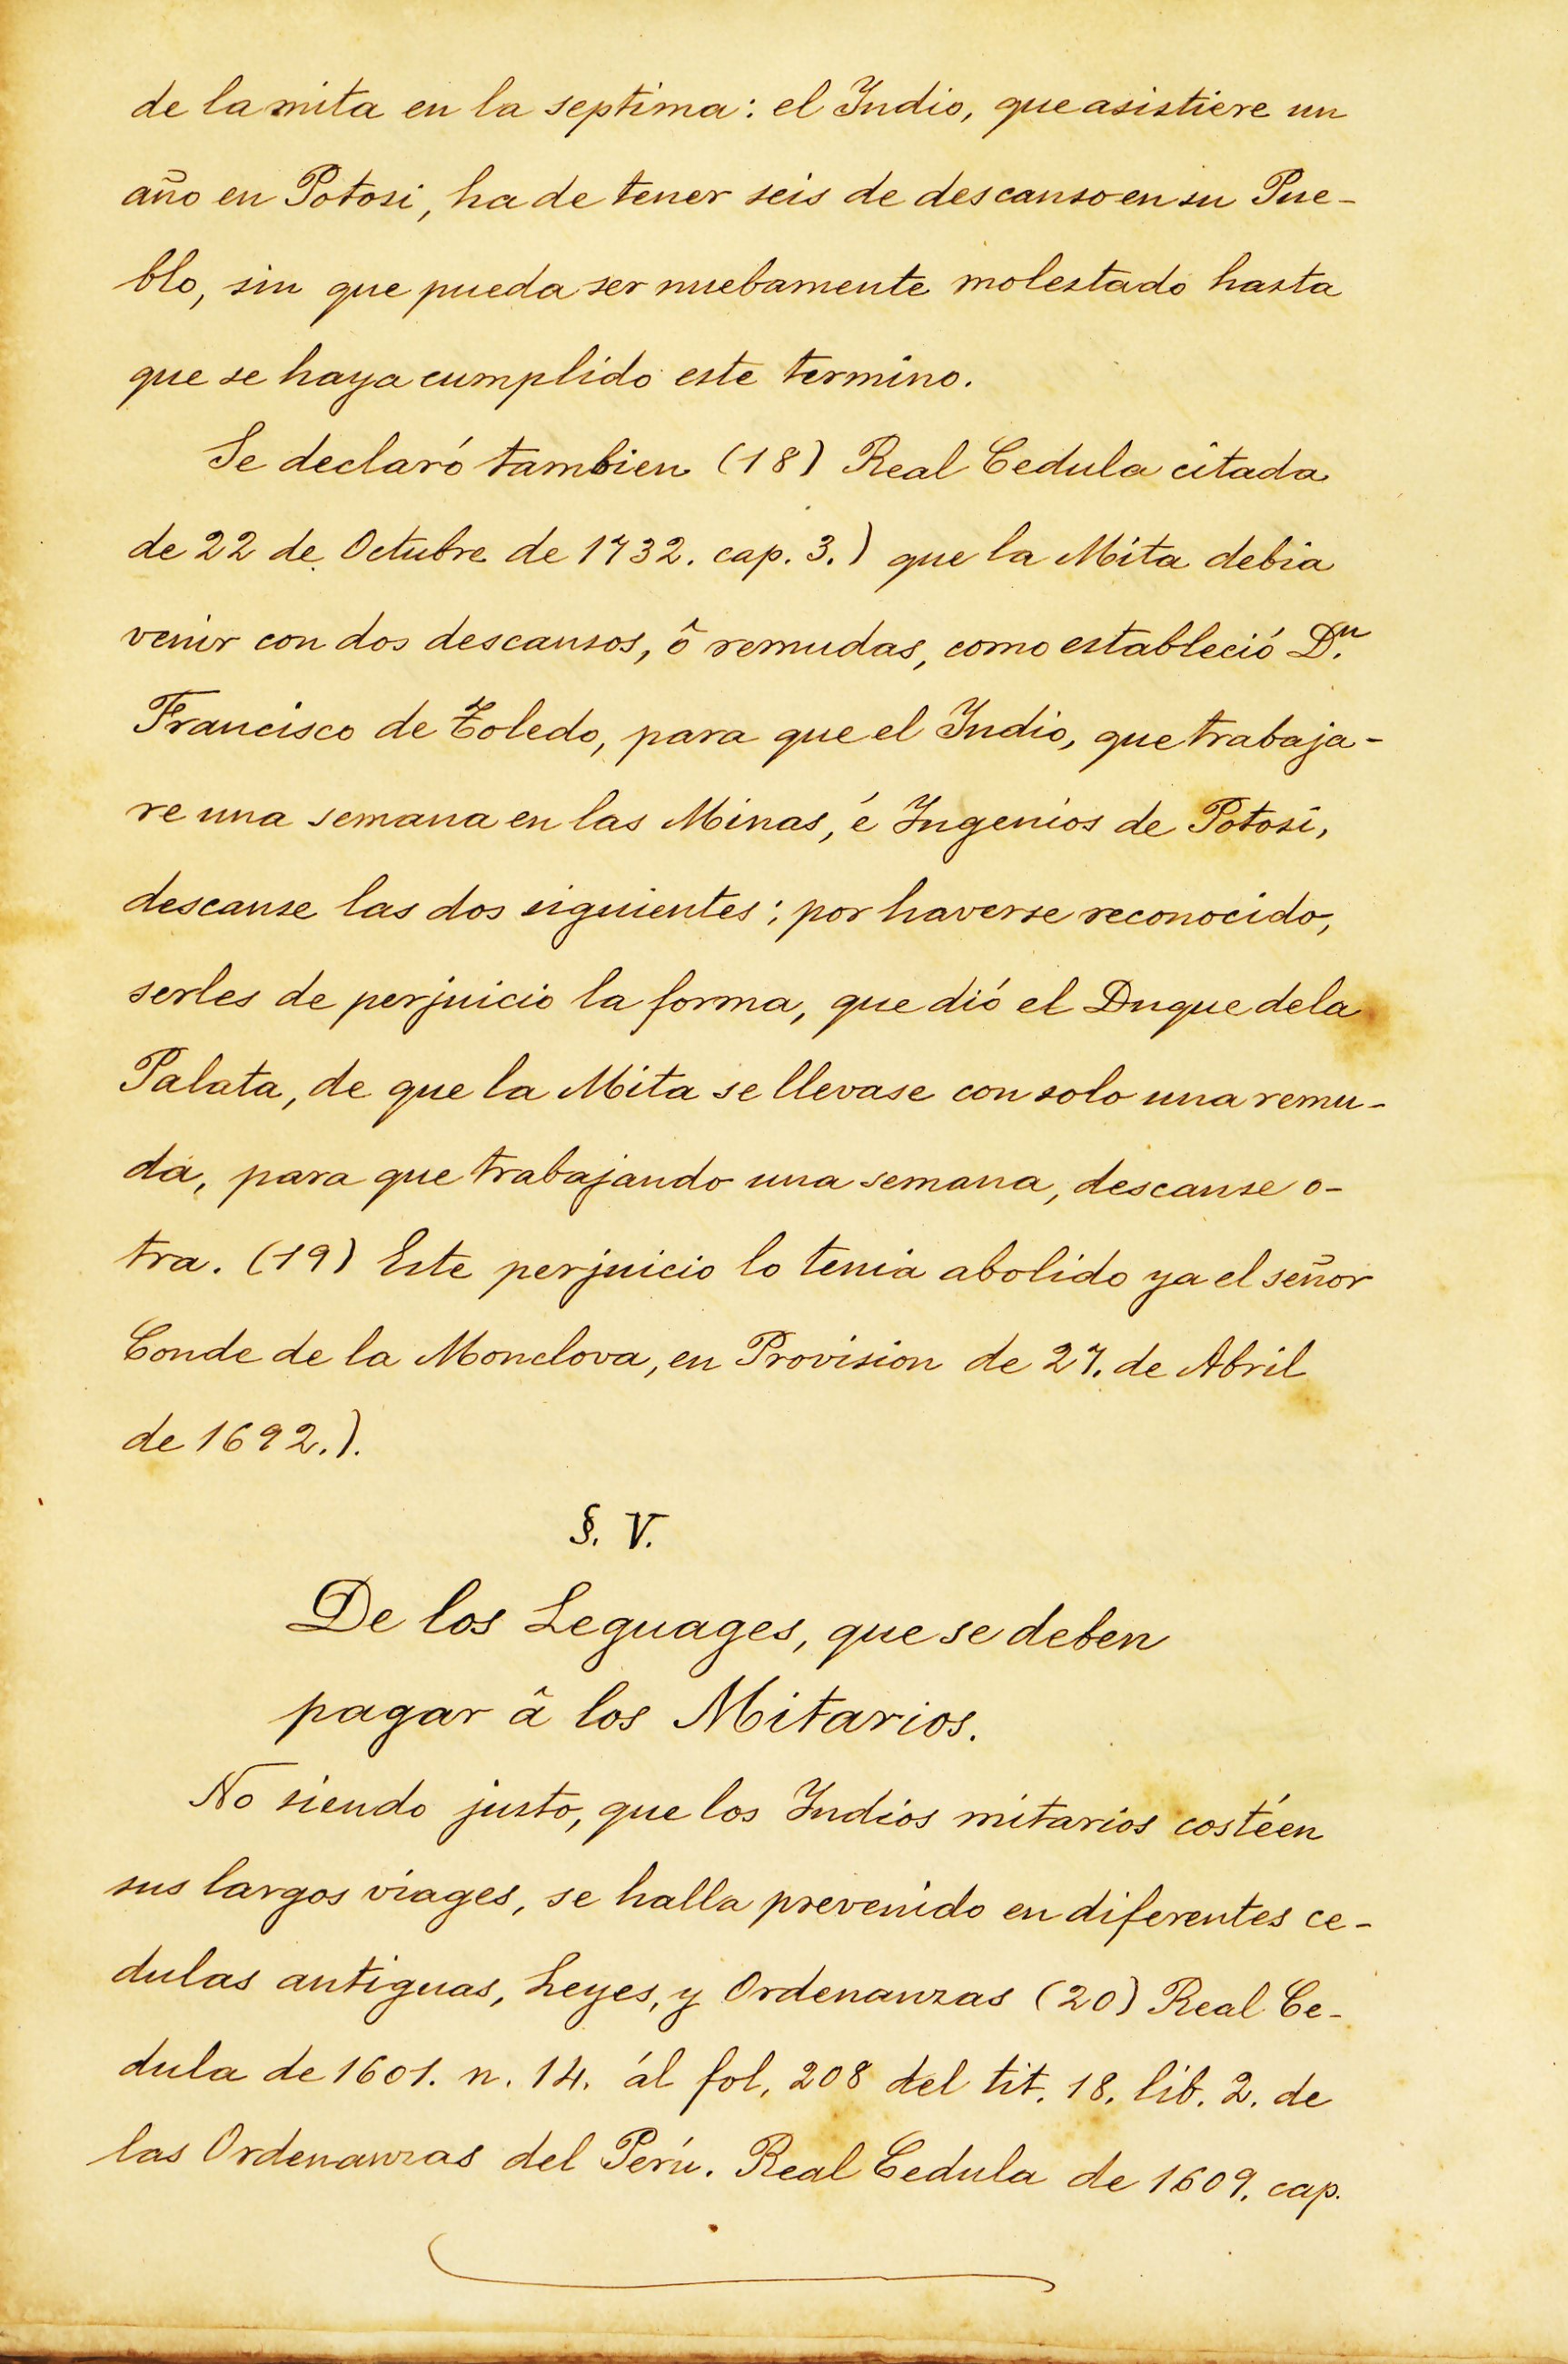 de la mita en la septima: el Indio, que asistiere un
año en Potosi, ha de tener seis de descanso en su Pue-
blo, sin que pueda ser nuebamente molestado hasta
que se haya cumplido este termino.
Se declaró tambien (18) Real Cedula citada
de 22 de Octubre de 1732. cap. 3.) que la Mita debia
venir con dos descansos, ô remudas, como estableció D.n
Francisco de Toledo, para que el Indio, que trabaja-
re una semana en las Minas, é Ingenios de Potosi,
descanse las dos siguientes; por haverse reconocido,
serles de perjuicio la forma, que dió el Duque de la
Palata, de que la Mita se llevase con solo una remu-
da, para que trabajando una semana, descanse o-
tra. (19) Este perjuicio lo tenia abolido ya el señor
Conde de la Monclova, en Provision de 27. de Abril
de 1692.).
§. V.
De los Leguages, que se deben
pagar â los Mitarios.
No siendo justo, que los Indios mitarios costéen
sus largos viages, se halla prevenido en diferentes ce-
dulas antiguas, Leyes, y Ordenanzas (20) Real Ce-
dula de 1601. n. 14. ál fol. 208 del tit. 18. lib. 2. de
las Ordenanzas del Perú. Real Cedula de 1609. cap.